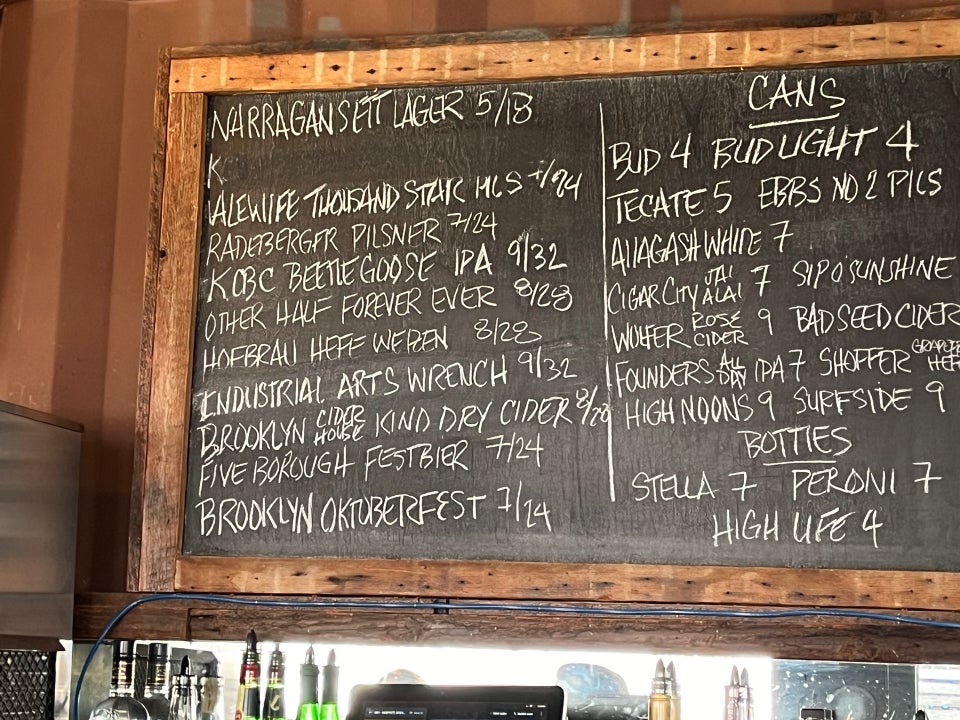 NARRAGANSETT LAGER 5/18
K
ALEWIFE THOUSAND STAR PILS 7/24
RADEBERGER PILSNER 7/24
KCBC BEETLEGOOSE IPA 9/32
OTHER HALF FOREVER EVER 8/28
HOFBRAU HEFE WEIZEN 8/28
INDUSTRIAL ARTS WRENCH 9/32
BROOKLYN CIDER HOUSE KIND DRY CIDER 8/28
FIVE BOROUGH FESTBIER 7/24
BROOKLYN OKTOBERFEST 7/24
CANS
BUD 4 BUD LIGHT 4
TECATE 5 EBBS NO 2 PILS
ALLAGASH WHITE 7
CIGAR CITY JAI ALAI 7 SIP O' SUNSHINE
WOLFFER ROSE CIDER 9 BAD SEED CIDER
FOUNDERS ALL DAY IPA 7 SHOFFER
HIGH NOONS 9 SURFSIDE 9
BOTTLES
STELLA 7 PERONI 7
HIGH LIFE 4